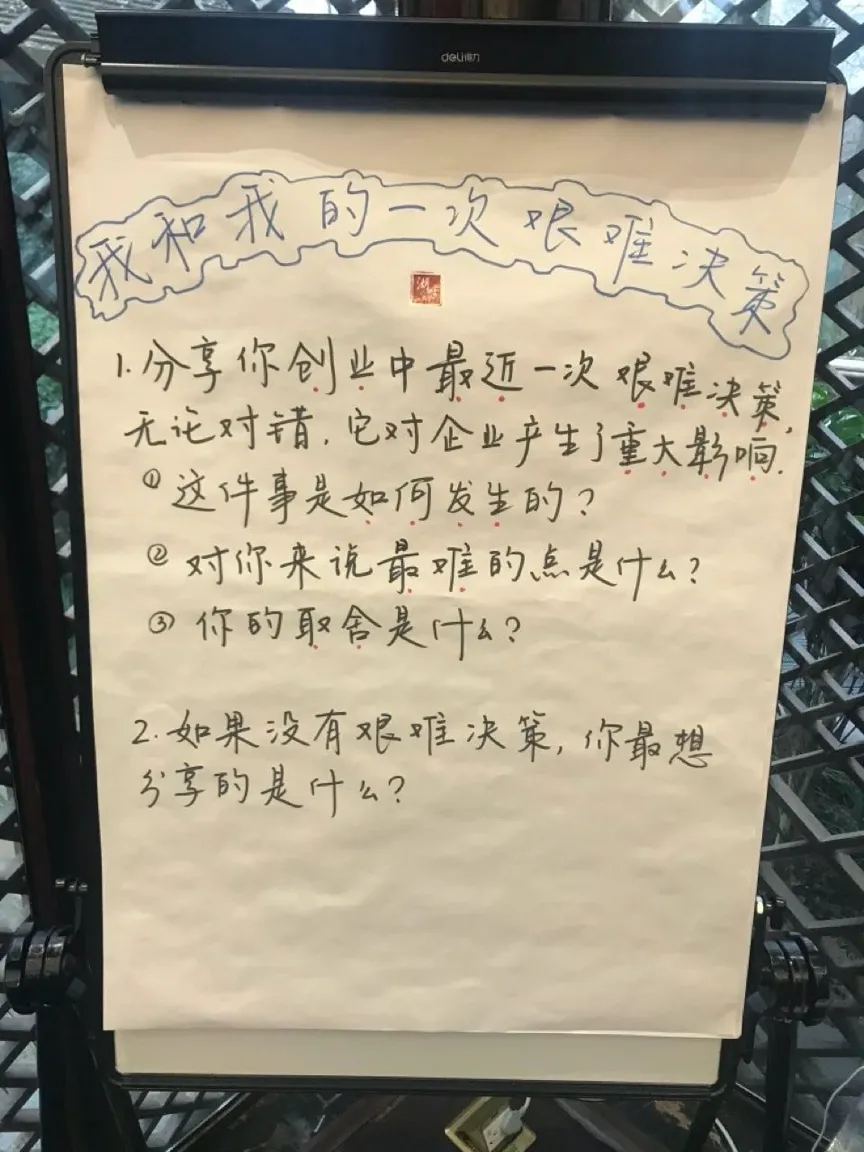 deli得力
我和我的一次艰难决策
1.分享你创业中最近一次艰难决策,
无论对错,它对企业产生了重大影响.
①这件事是如何发生的?
②对你来说最难的点是什么?
③你的取舍是什么?
2.如果没有艰难决策,你最想
分享的是什么?